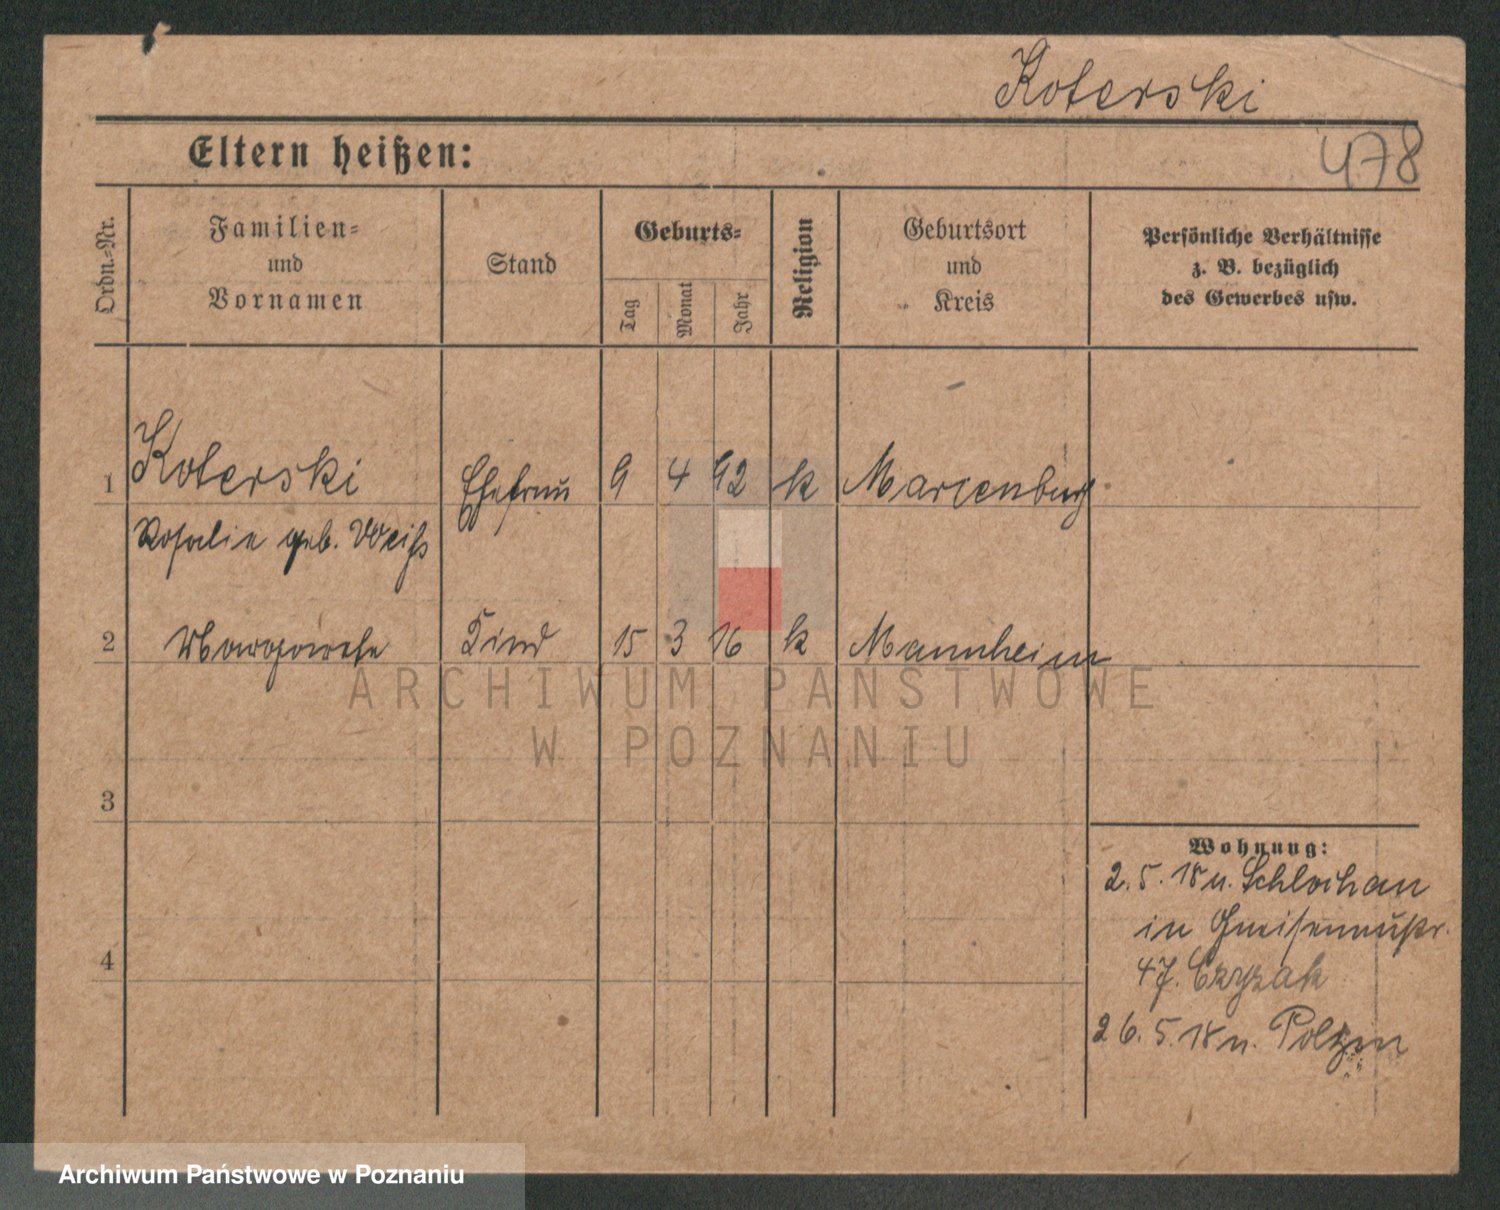 Koterski
478
Eltern heißen:
Ordn.-Nr.
Familien-
und
Vornamen
Stand
Geburts-
Tag
Monat
Jahr
Religion
Geburtsort
und
Kreis
Persönliche Verhältnisse
z. B. bezüglich
des Gewerbes usw.
1 Koterski Ehefrau 9 4 92 k Marienburg
Rosalie geb. Weiß
2 Margarete Kind 15 3 16 k Mannheim
3
4
Wohnung:
2. 5. 18 n. Schlochau
in Gneisenaustr.
47. Czyzak
26. 5. 18 n. Polzin
ARCHIWUM PAŃSTWOWE
W POZNANIU
Archiwum Państwowe w Poznaniu